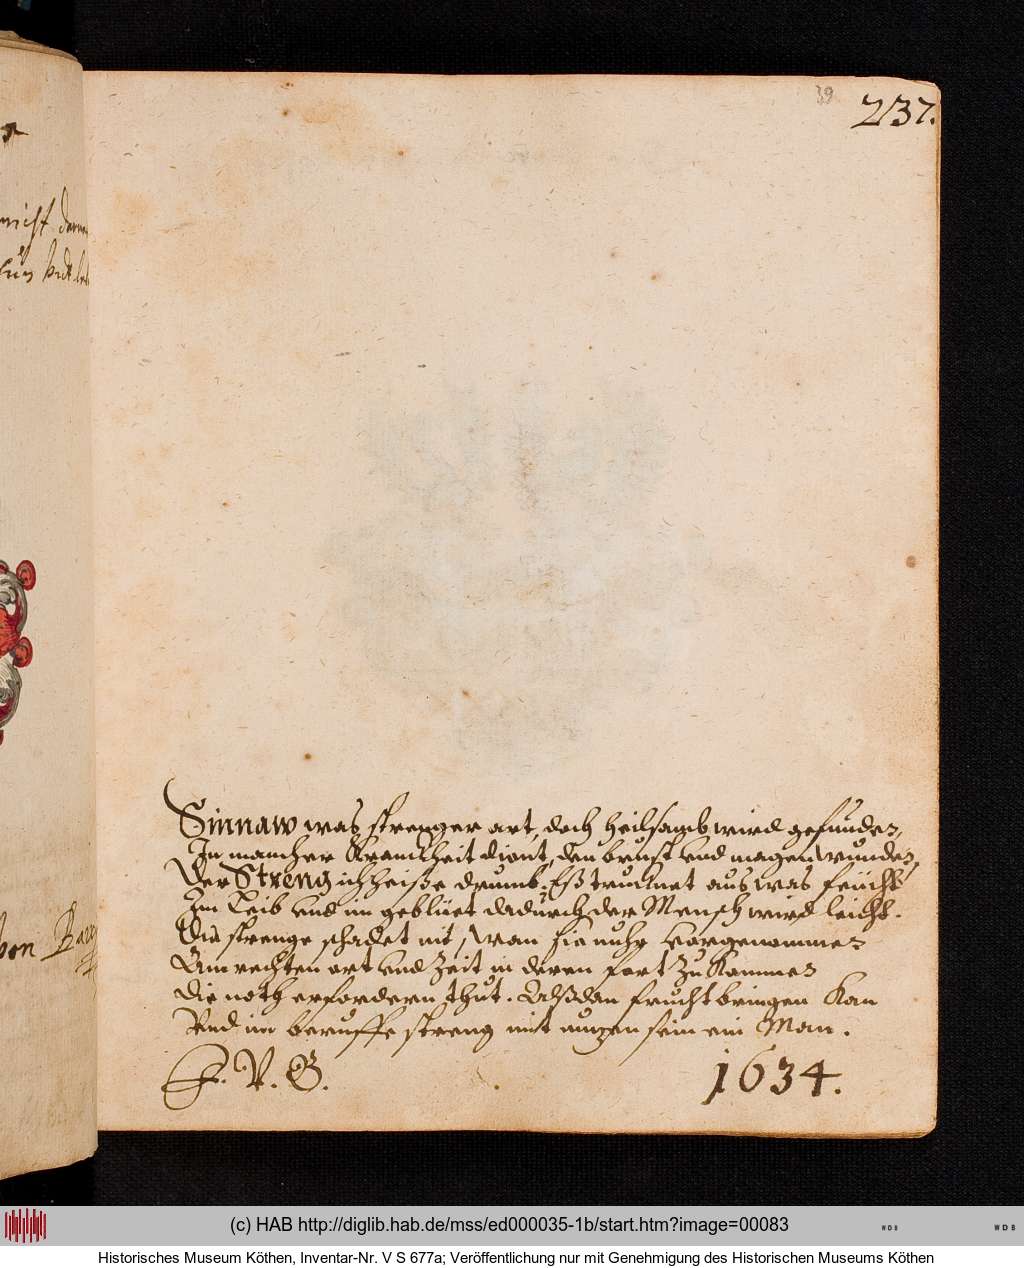 39
237.
nicht
von
Sinnaw was strenger art, doch heilsamb wird gefunden,
In mancher Kranckheit dient, den brust vnd magen wunden,
Der Streng ich heiße drumb. Eß trucknet aus was feücht
Im Leib vnd im geblüet dadurch der Mensch wird leicht.
Die strenge schadet nit, wan sie nuhr vorgenommen
Am rechten ort vnd Zeit, in deren fort Zu Kommen
Die noth erfordern thut. Alßdan frucht bringen Kan
Vnd im beruffe streng mit nuzen sein ein Man.
F. V. B.
1634.
(c) HAB http://diglib.hab.de/mss/ed000035-1b/start.htm?image=00083
WDB
WDB
Historisches Museum Köthen, Inventar-Nr. V S 677a; Veröffentlichung nur mit Genehmigung des Historischen Museums Köthen